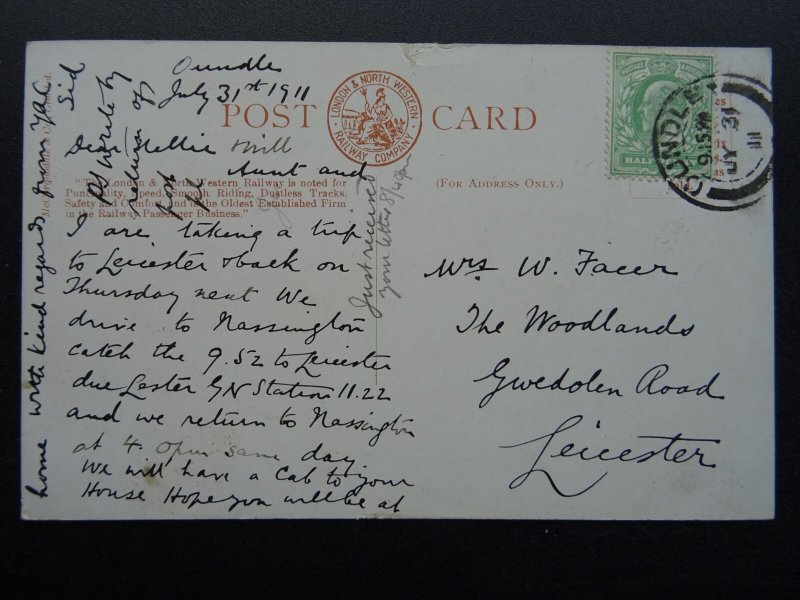 Oundle
July 31st 1911
POST CARD
LONDON & NORTH WESTERN RAILWAY COMPANY
Dear Nellie Will
Aunt and
I are taking a trip
to Leicester & back on
Thursday next We
drive to Nassington
catch the 9.52 to Leicester
due Lester GN Station 11.22
and we return to Nassington
at 4.0pm same day
We will have a cab to your
House Hope you will be at
home with kind regards from Yrs
Sid
PS write by
return of
post
Just received
your letter
"The London & North Western Railway is noted for
Punctuality, Speed, Smooth Riding, Dustless Tracks,
Safety and Comfort, and is the Oldest Established Firm
in the Railway Passenger Business."
(FOR ADDRESS ONLY.)
OUNDLE
JY 31
11
Mrs W. Facer
The Woodlands
Gwedolen Road
Leicester